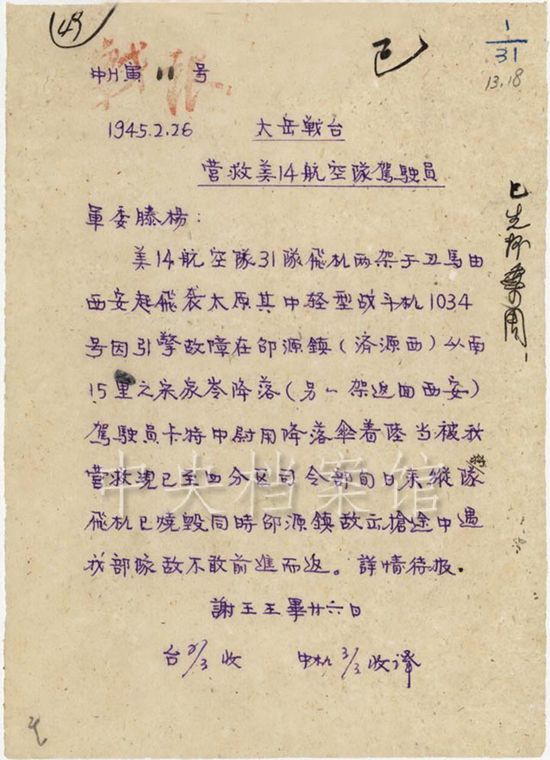 49
1
31
13.18
戰报
巳
中川寅 11 号
1945.2.26 太岳戰台
营救美14航空隊駕駛員
軍委滕楊：
美14航空隊31隊飛机两架于丑馬由
西安起飛袭太原其中轻型战斗机1034
号因引擎故障在邵源鎮（済源西）以南
15里之宋家岺降落（另一架返回西安）
駕駛員卡特中尉用降落伞着陸当被我
营救現已至四分区司令部旬日来縱隊
飛机已燒毀同時邵源鎮敌出搶途中遇
我部隊敌不敢前進而返。詳情待报.
謝王王畢廿六日
台 /3 收 中机 3/3 收译
中央档案馆